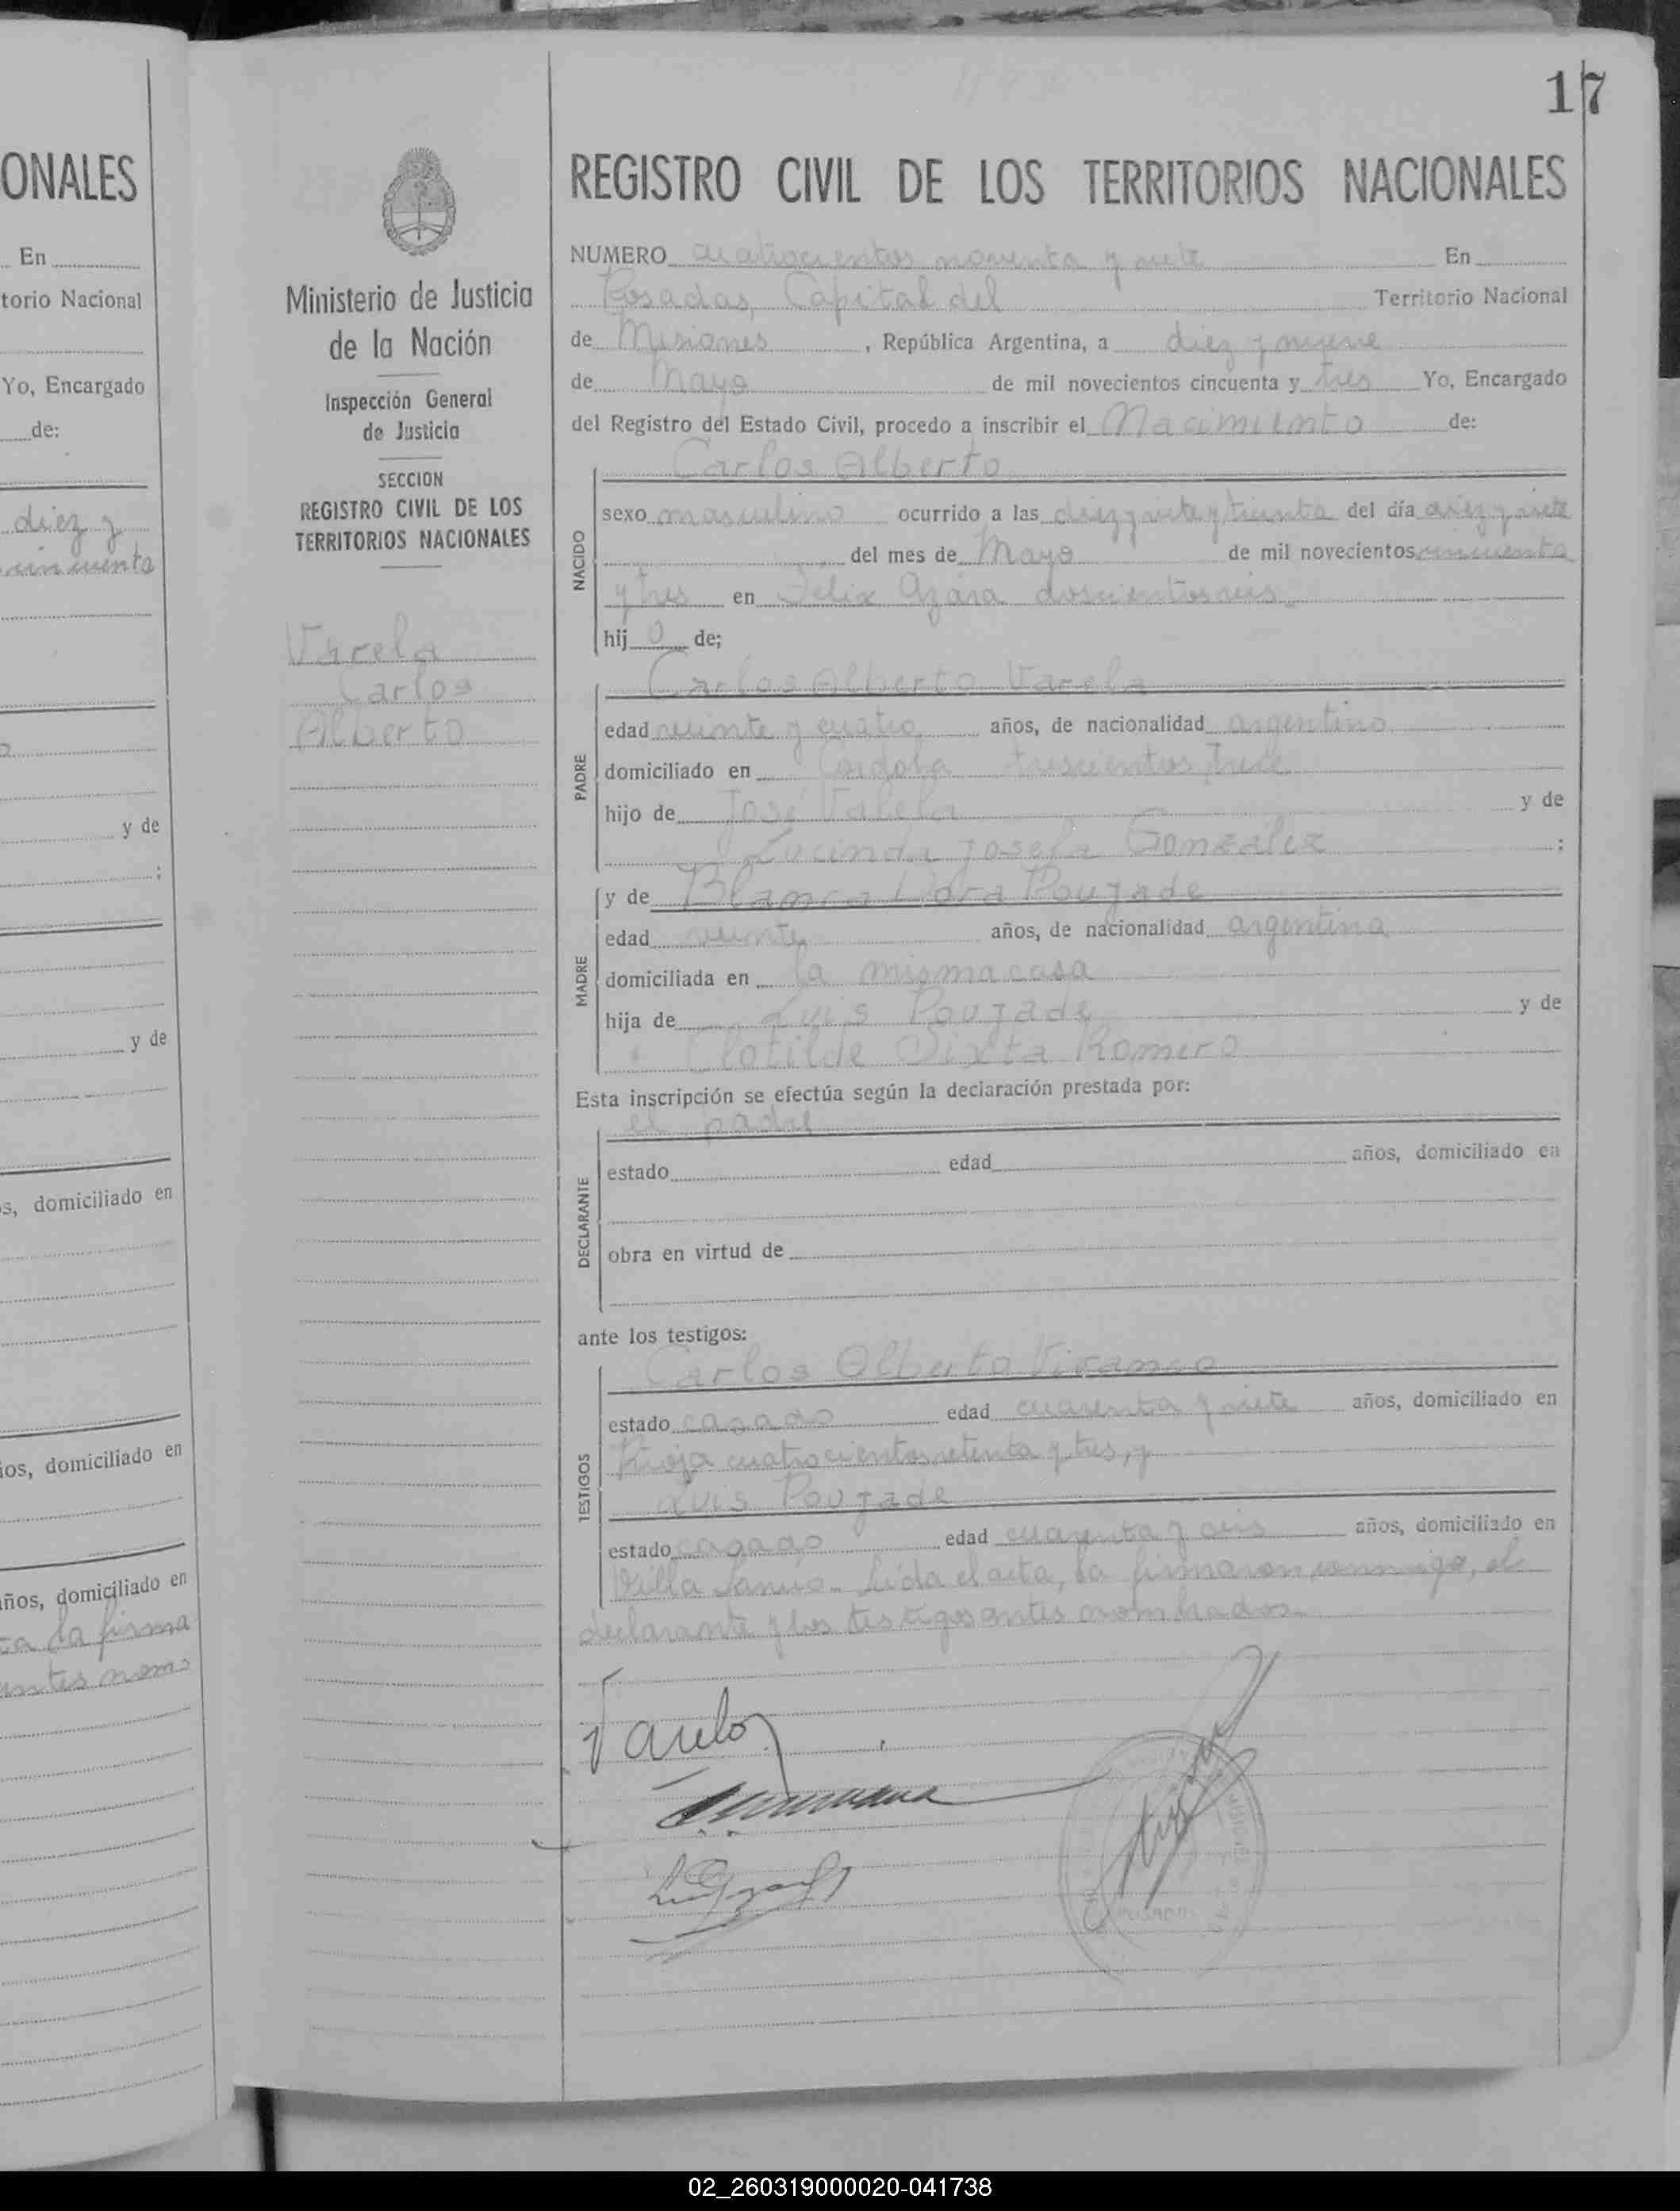 ONALES
En
torio Nacional
Yo, Encargado
de:
diez y
cincuenta
y de
;
y de
s, domiciliado en
ños, domiciliado en
años, domiciliado en
la firma
antes nom=
Ministerio de Justicia
de la Nación
Inspección General
de Justicia
SECCION
REGISTRO CIVIL DE LOS
TERRITORIOS NACIONALES
Varela
Carlos
Alberto
17
REGISTRO CIVIL DE LOS TERRITORIOS NACIONALES
NUMERO cuatrocientos noventa y siete En
Posadas, Capital del Territorio Nacional
de Misiones, República Argentina, a diez y nueve
de Mayo de mil novecientos cincuenta y tres Yo, Encargado
del Registro del Estado Civil, procedo a inscribir el Nacimiento de:
NACIDO
Carlos Alberto
sexo masculino ocurrido a las diez y siete y treinta del día diez y siete
del mes de Mayo de mil novecientos cincuenta
y tres en Félix Azara doscientos seis
hijo de;
PADRE
Carlos Alberto Varela
edad veinte y cuatro años, de nacionalidad argentino
domiciliado en Córdoba trescientos trece
hijo de José Varela y de
Lucinda Josefa González ;
MADRE
y de Blanca Dora Poujade
edad veinte años, de nacionalidad argentina
domiciliada en la misma casa
hija de Luis Poujade y de
Clotilde Sixta Romero
Esta inscripción se efectúa según la declaración prestada por:
DECLARANTE
el padre
estado edad años, domiciliado en
obra en virtud de
ante los testigos:
TESTIGOS
Carlos Alberto Vivanco
estado casado edad cuarenta y siete años, domiciliado en
Rioja cuatrocientos setenta y tres, y
Luis Poujade
estado casado edad cuarenta y seis años, domiciliado en
Villa Lanús. Leída el acta, la firmaron conmigo, el
declarante y los testigos antes nombrados.
Varela
02_260319000020-041738